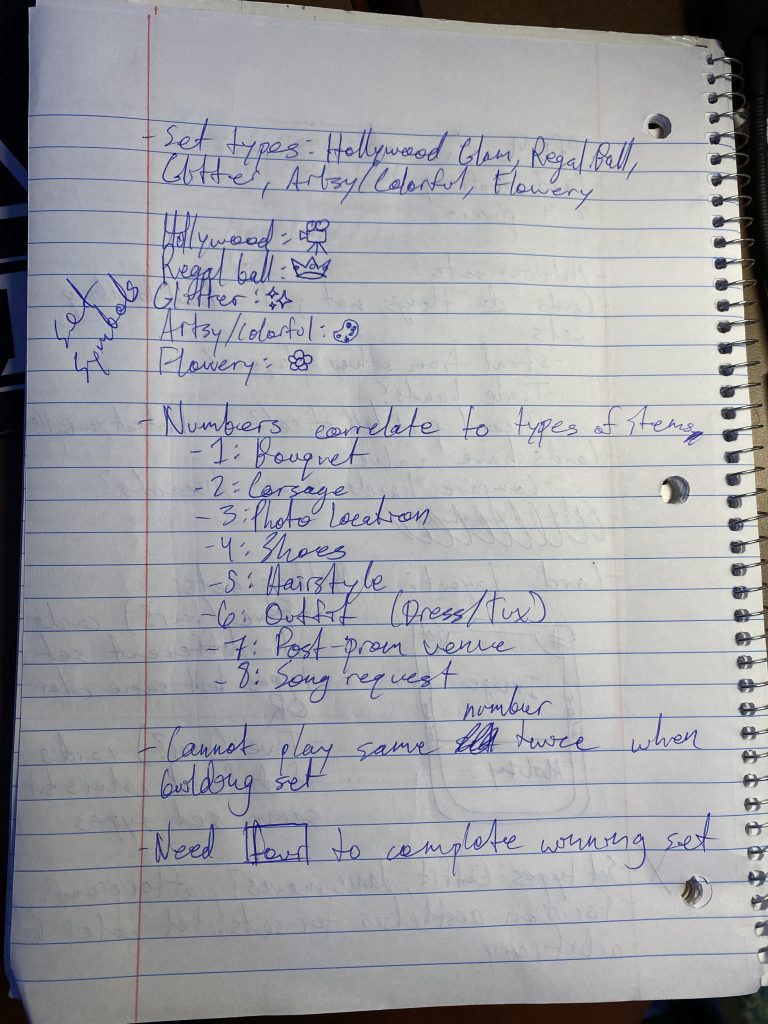 - Set types: Hollywood Glam, Regal Ball,
Glitter, Artsy/Colorful, Flowery
Set
Symbols
Hollywood =
Regal ball:
Glitter:
Artsy/Colorful:
Flowery:
- Numbers correlate to types of items
- 1: Bouquet
- 2: Corsage
- 3: Photo location
- 4: Shoes
- 5: Hairstyle
- 6: Outfit (Dress/Tux)
- 7: Post-prom venue
- 8: Song request
number
- Cannot play same twice when
building set
- Need four to complete winning set